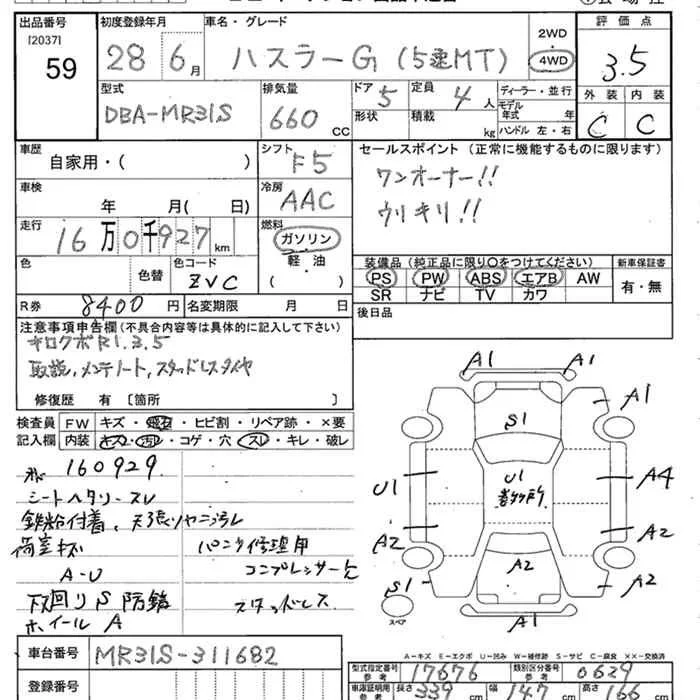 出品番号 初度登録年月 車名・グレード 評価点
[2037] 59 28年6月 ハスラーG (5速MT) 2WD 4WD 3.5
型式 排気量 ドア 定員 ディーラー・並行 外装 内装
DBA-MR31S 660 CC 5 4人 モデル年式 年 C C
形状 積載 kg ハンドル 左・右
車歴 シフト セールスポイント (正常に機能するものに限ります)
自家用・( ) F5 ワンオーナー!!
車検 冷房 ウリキリ!!
年 月( 日) AAC
走行 燃料
16万0千927km ガソリン 装備品 (純正品に限り○をつけてください) 新車保証書
色 色替 色コード 軽・油 PS PW ABS エアB AW 有・無
ZVC ( ) SR ナビ TV カワ
R券 8400円 名変期限 月 日 後日品
注意事項申告欄(不具合内容等は具体的に記入して下さい)
キロクボR1.3.5
取説,メンテノート,スタッドレスタイヤ
修復歴 有 [箇所 ]
検査員 FW キズ・飛石・ヒビ割・リペア跡・×要
記入欄 内装 キズ・汚れ・コゲ・穴・スレ・キレ・破レ
160929
シートヘタリ・スレ
鉄粉付着、天張りヤニ汚レ
荷室キズ パンク修理用
A-U コンプレッサー欠
下回りS防錆 スタッドレス
ホイールA
A1 A1
A1
S1
U1 U1 A4
A2 A2
A2 A2
S1
スペア
A-キズ E-エクボ U-凹み W-補修跡 S-サビ C-腐食 XX-交換済
車台番号 MR31S-311682
型式指定番号 参考 17676 類別区分番号 参考 0629
登録番号 車庫証明用 参考 長さ 339cm 幅 147cm 高さ 166cm